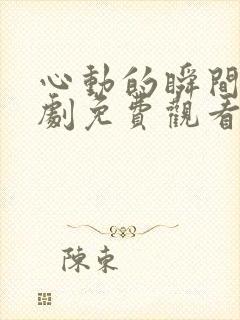 心動的瞬間
劇免費觀看
陳東